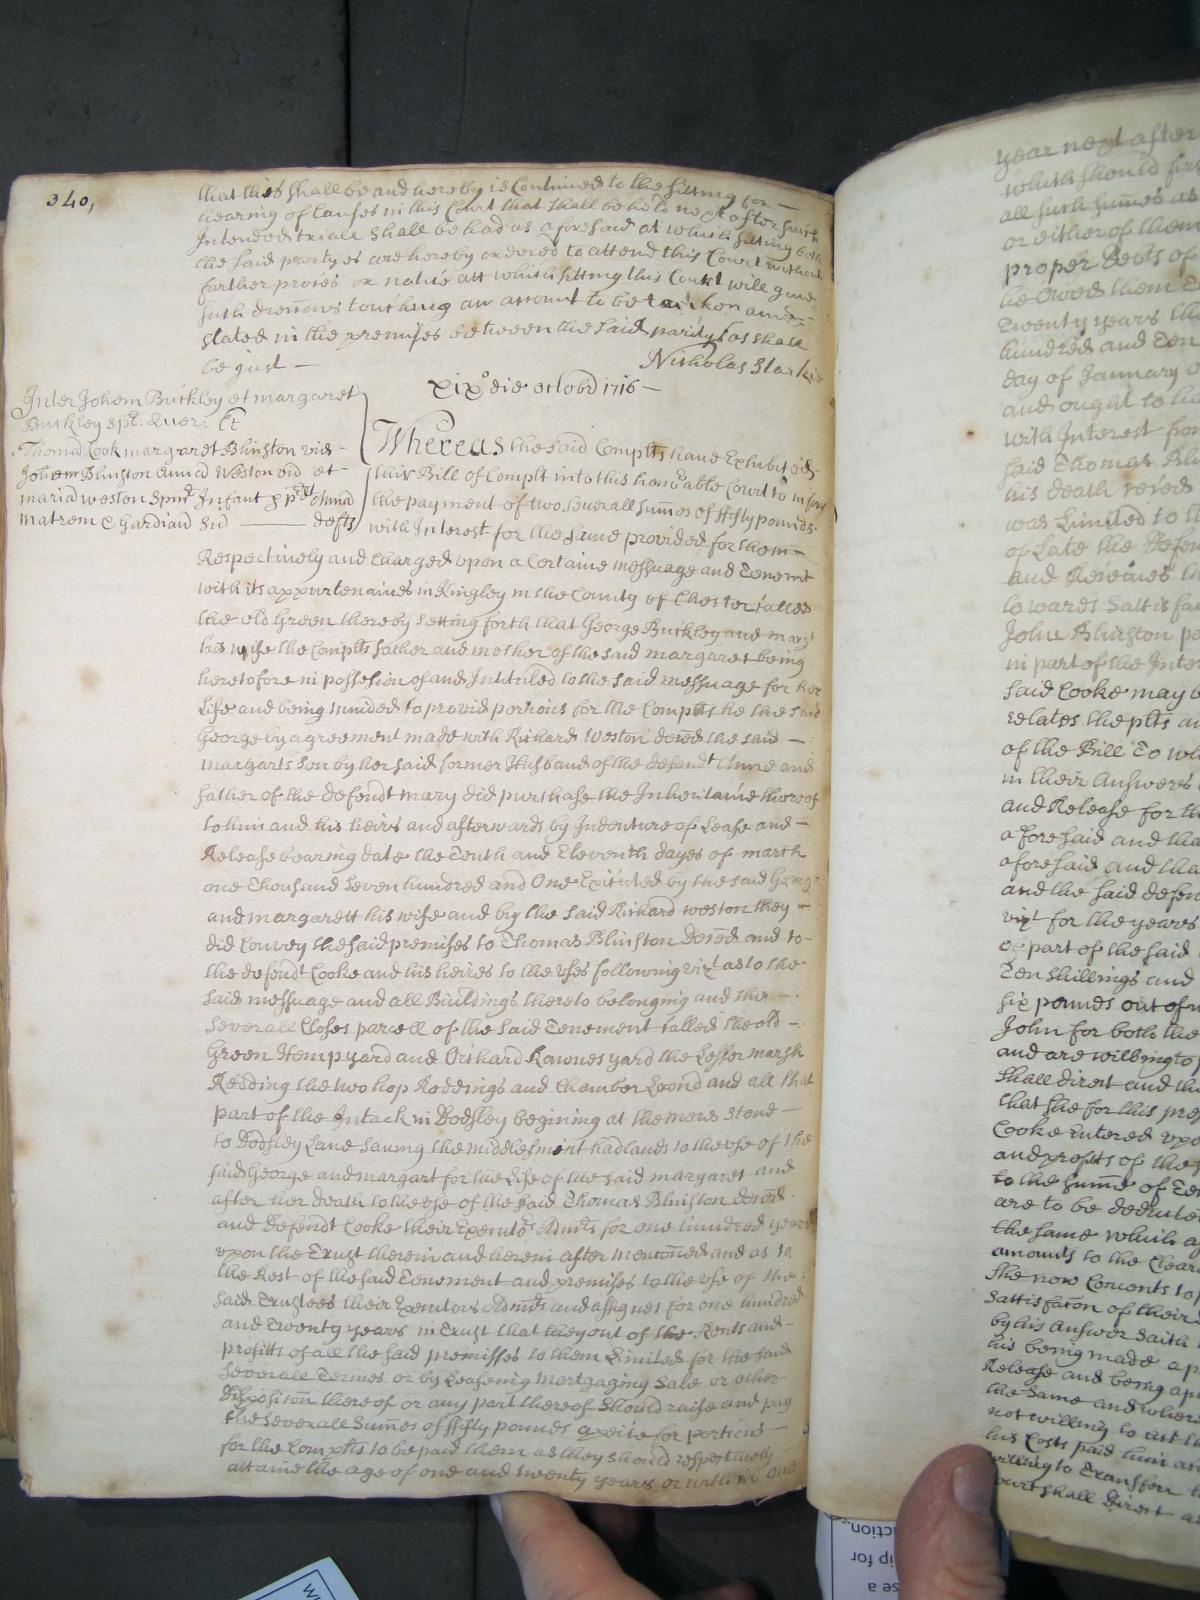 340,
that this shall be and hereby is Continued to the sitting for —
hearing of Causes in this Court that shall be held next after such
Intended triall shall be had as aforesaid at which sitting both
the said partyes are hereby ordered to attend this Court without
further proces or notice att which sitting this Court will give
such direccons touching an accont to be taiken and —
stated in the premises between the said partyes as shall
be just —
Nicholas Starkie
xixº die octobr 1716 —
Inter Johem Buckley et margaret
Buckley spr: Quer: Et
Thomã Cook margaret Blinston vid
Johem Blinston Annã Weston vid et
mariã weston Spinr Infant p pred Annã
matrem & Gardianã suã —— defts
Whereas the said Complts have Exhibited
their Bill of Complt into this honoable Court to inforce
the payment of two severall sumes of fifty pounds
with Interest for the same provided for them —
Respectively and Charged upon a Certaine messuage and Tenemt
with its appurtenances in Kingley in the County of Chester called
the old Green thereby setting forth that George Buckley and margt
his wife the Complts father and mother of the said margaret being
heretofore in possession of and Intituled to the said messuage for her
Life and being minded to provid porcons for the Complts he the said
George by agreement made with Richard Weston deced the said —
margarts son by her said former Husband of the defendt Anne and
father of the defendt mary did purchase the Inheritance thereof
to him and his heirs and afterwards by Indenture of Lease and —
Release bearing date the Tenth and Eleventh dayes of march
one Thousand seven hundred and One Executed by the said George
and margarett his wife and by the said Richard weston they —
did Convey the said premises to Thomas Blinston deced and to
the defendt Cooke and his heires to the uses following vizt as to the
said messuage and all Buildings thereto belonging and the —
severall Closes parcell of the said Tenement called the old —
Green Hempyard and Orchard Rawnes yard the Lesser marsh
Redding the two hop Roddings and Chamber Lound and all that
part of the Intack in Bodsley begining at the mere stone —
to Bodsley Lane saving the middlesmort hadlands to the use of the
said George and margart for the Life of the said margaret and
after her death to the use of the said Thomas Blinston deced
and defendt Cooke their Executors Admrs for one hundred years
upon the Trust therein and herein after mentioned and as to
the Rest of the said Tenement and premises to the use of the
said Trustees their Executors Admrs and assignes for one hundred
and Twenty years in Trust that they out of the Rents and —
profitts of all the said premisses to them Limited for the said
severall Termes or by Leaseing mortgaging Sale or other
disposition thereof or any part thereof should raise and pay
the severall sumes of fifty pounds apeice for portions —
for the Complts to be paid them as they should respectively
attaine the age of one and twenty years or within one
year next after
which should
all such sumes as
or either of them
proper debts of
he Owed them
Twenty years
hundred and Ten
day of January
and ought to
with Interest from
said Thomas
his death
was Limited to
of Late the defen
and Receives
towards Sattisfa
John Blinston
in part of the Inte
said Cooke may
relates the plts
of the Bill To
in their Answers
and Release for
aforesaid and tha
aforesaid and tha
and the said defen
vizt for the years
of part of the said
Ten shillings and
six pounds out of
John for both the
and are willing to
shall direct and
that she for this
Cooke Entered upo
and profitts of the
to the sume of
are to be deducte
the same which
amounts to the Clear
she now Concents to
Sattisfacon of their
by his Answer saith
his being made a
Release and being
the same and where
not willing to act
his Costs paid him
willing to Transferr
Court shall direct